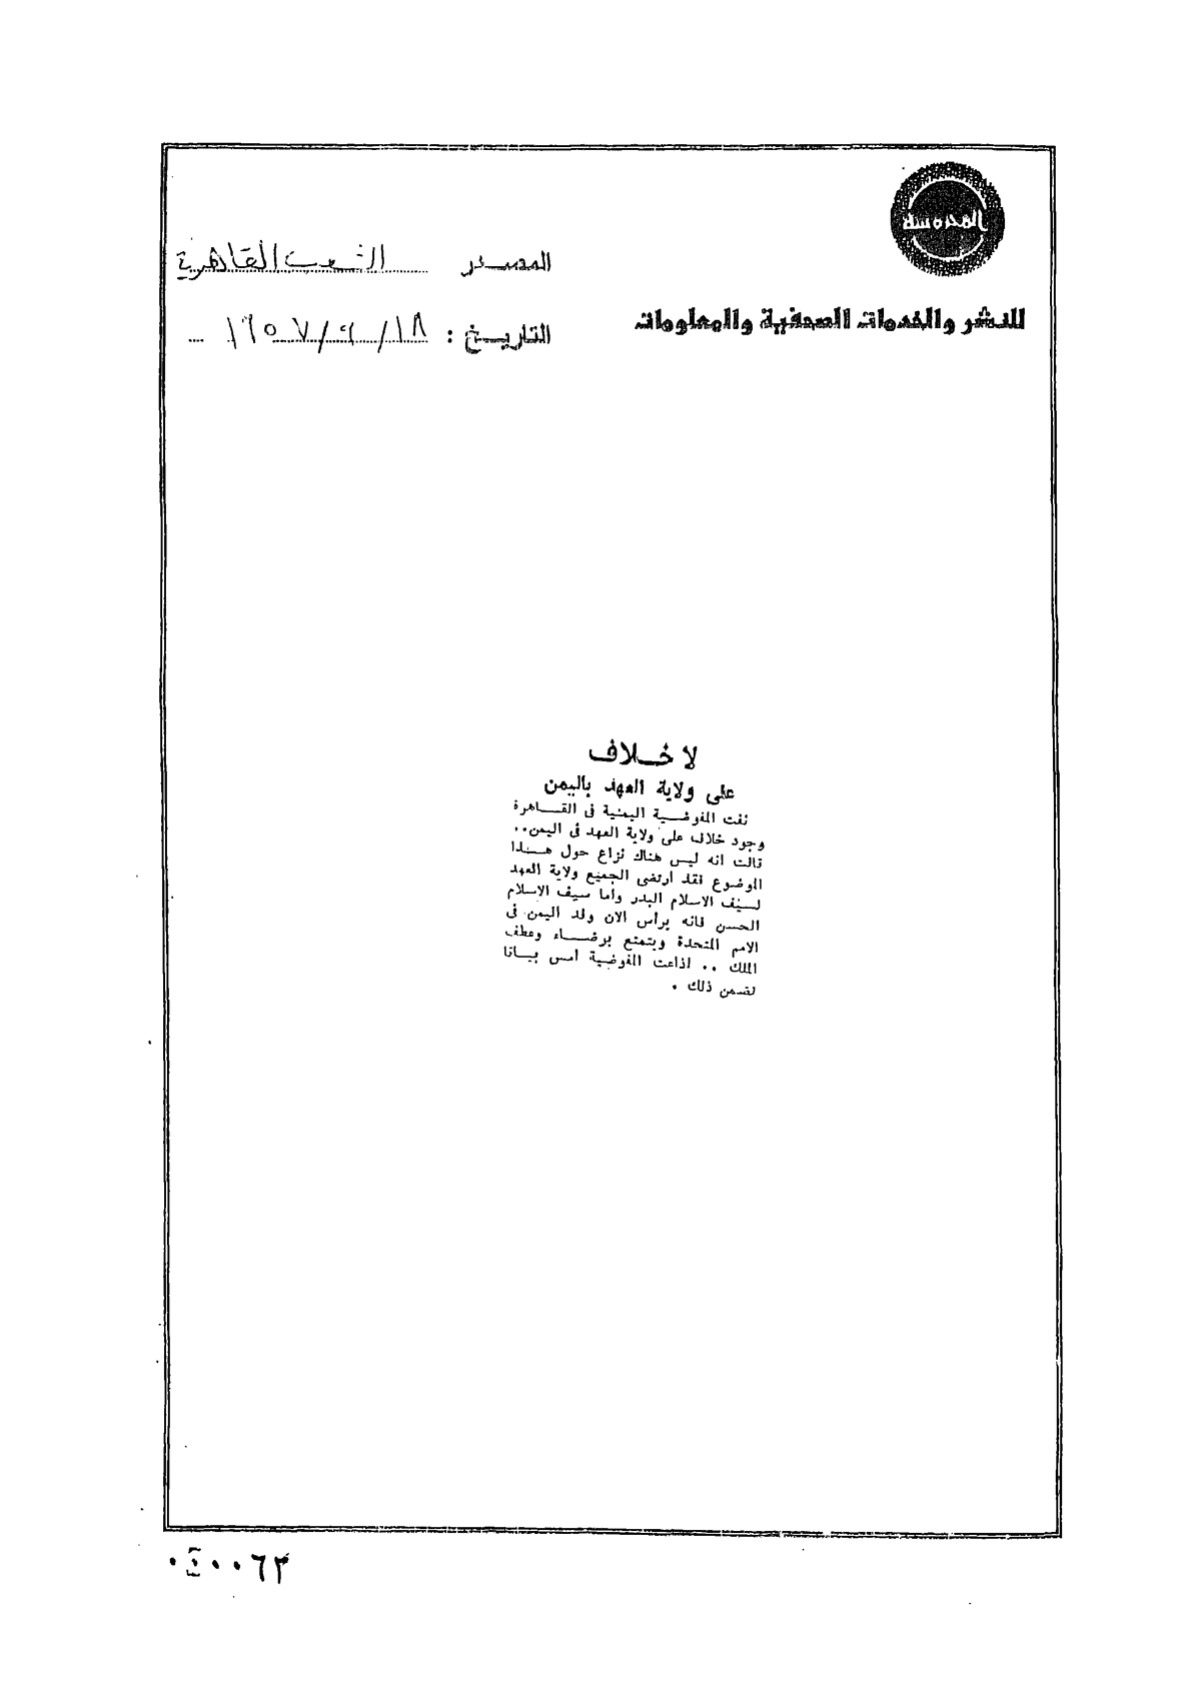 المحروسة
للنشر والخدمات الصحفية والمعلومات
المصدر الشعب القاهرية
التاريخ : ١٨/٩/١٩٥٧
لا خلاف
على ولاية العهد باليمن
نفت المفوضية اليمنية فى القاهرة
وجود خلاف على ولاية العهد فى اليمن..
قالت انه ليس هناك نزاع حول هذا
الموضوع فقد ارتضى الجميع ولاية العهد
لسيف الاسلام البدر وأما سيف الاسلام
الحسن فانه يرأس الان وفد اليمن فى
الامم المتحدة ويتمتع برضاء وعطف
الملك .. اذاعت المفوضية امس بيانا
تضمن ذلك .
٠٤٠٠٦٣